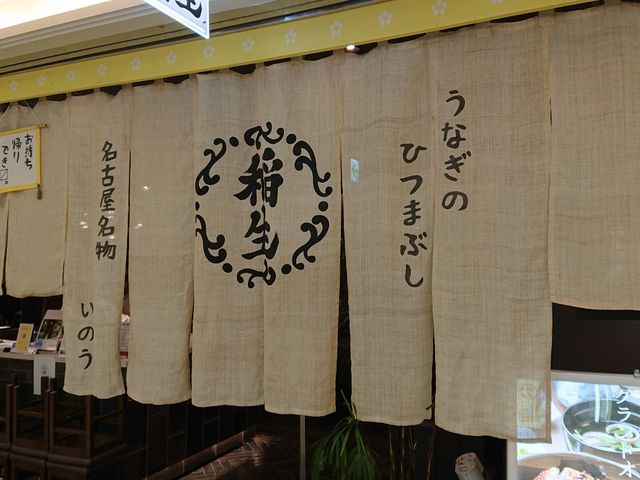 うなぎの
ひつまぶし
稲生
名古屋名物
いのう
お持ち
帰り
でき
グランド木